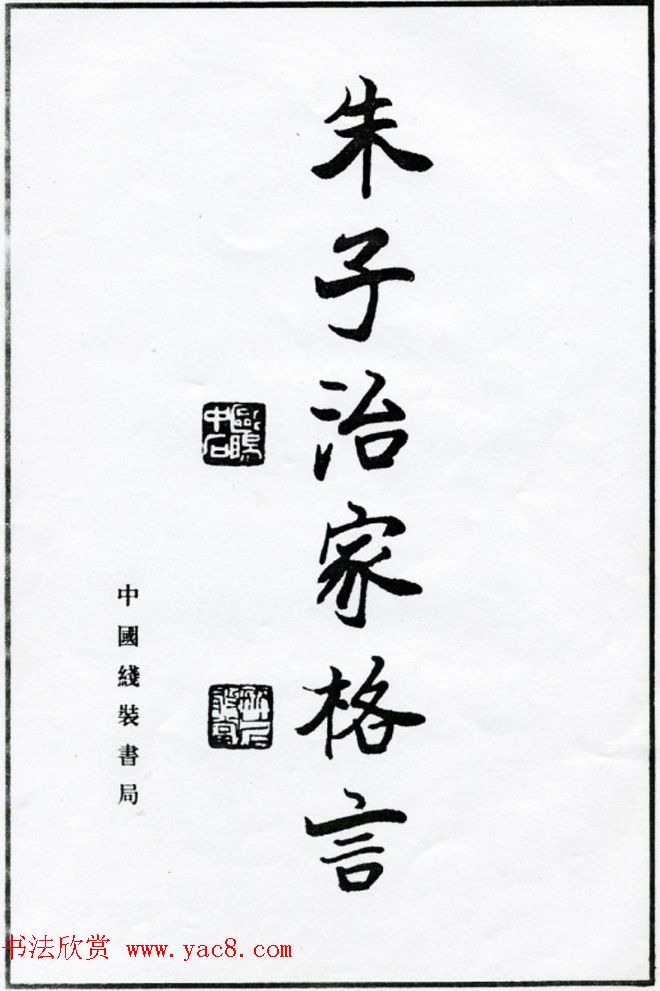 朱子治家格言
歐陽中石
中國綫裝書局
书法欣赏 www.yac8.com